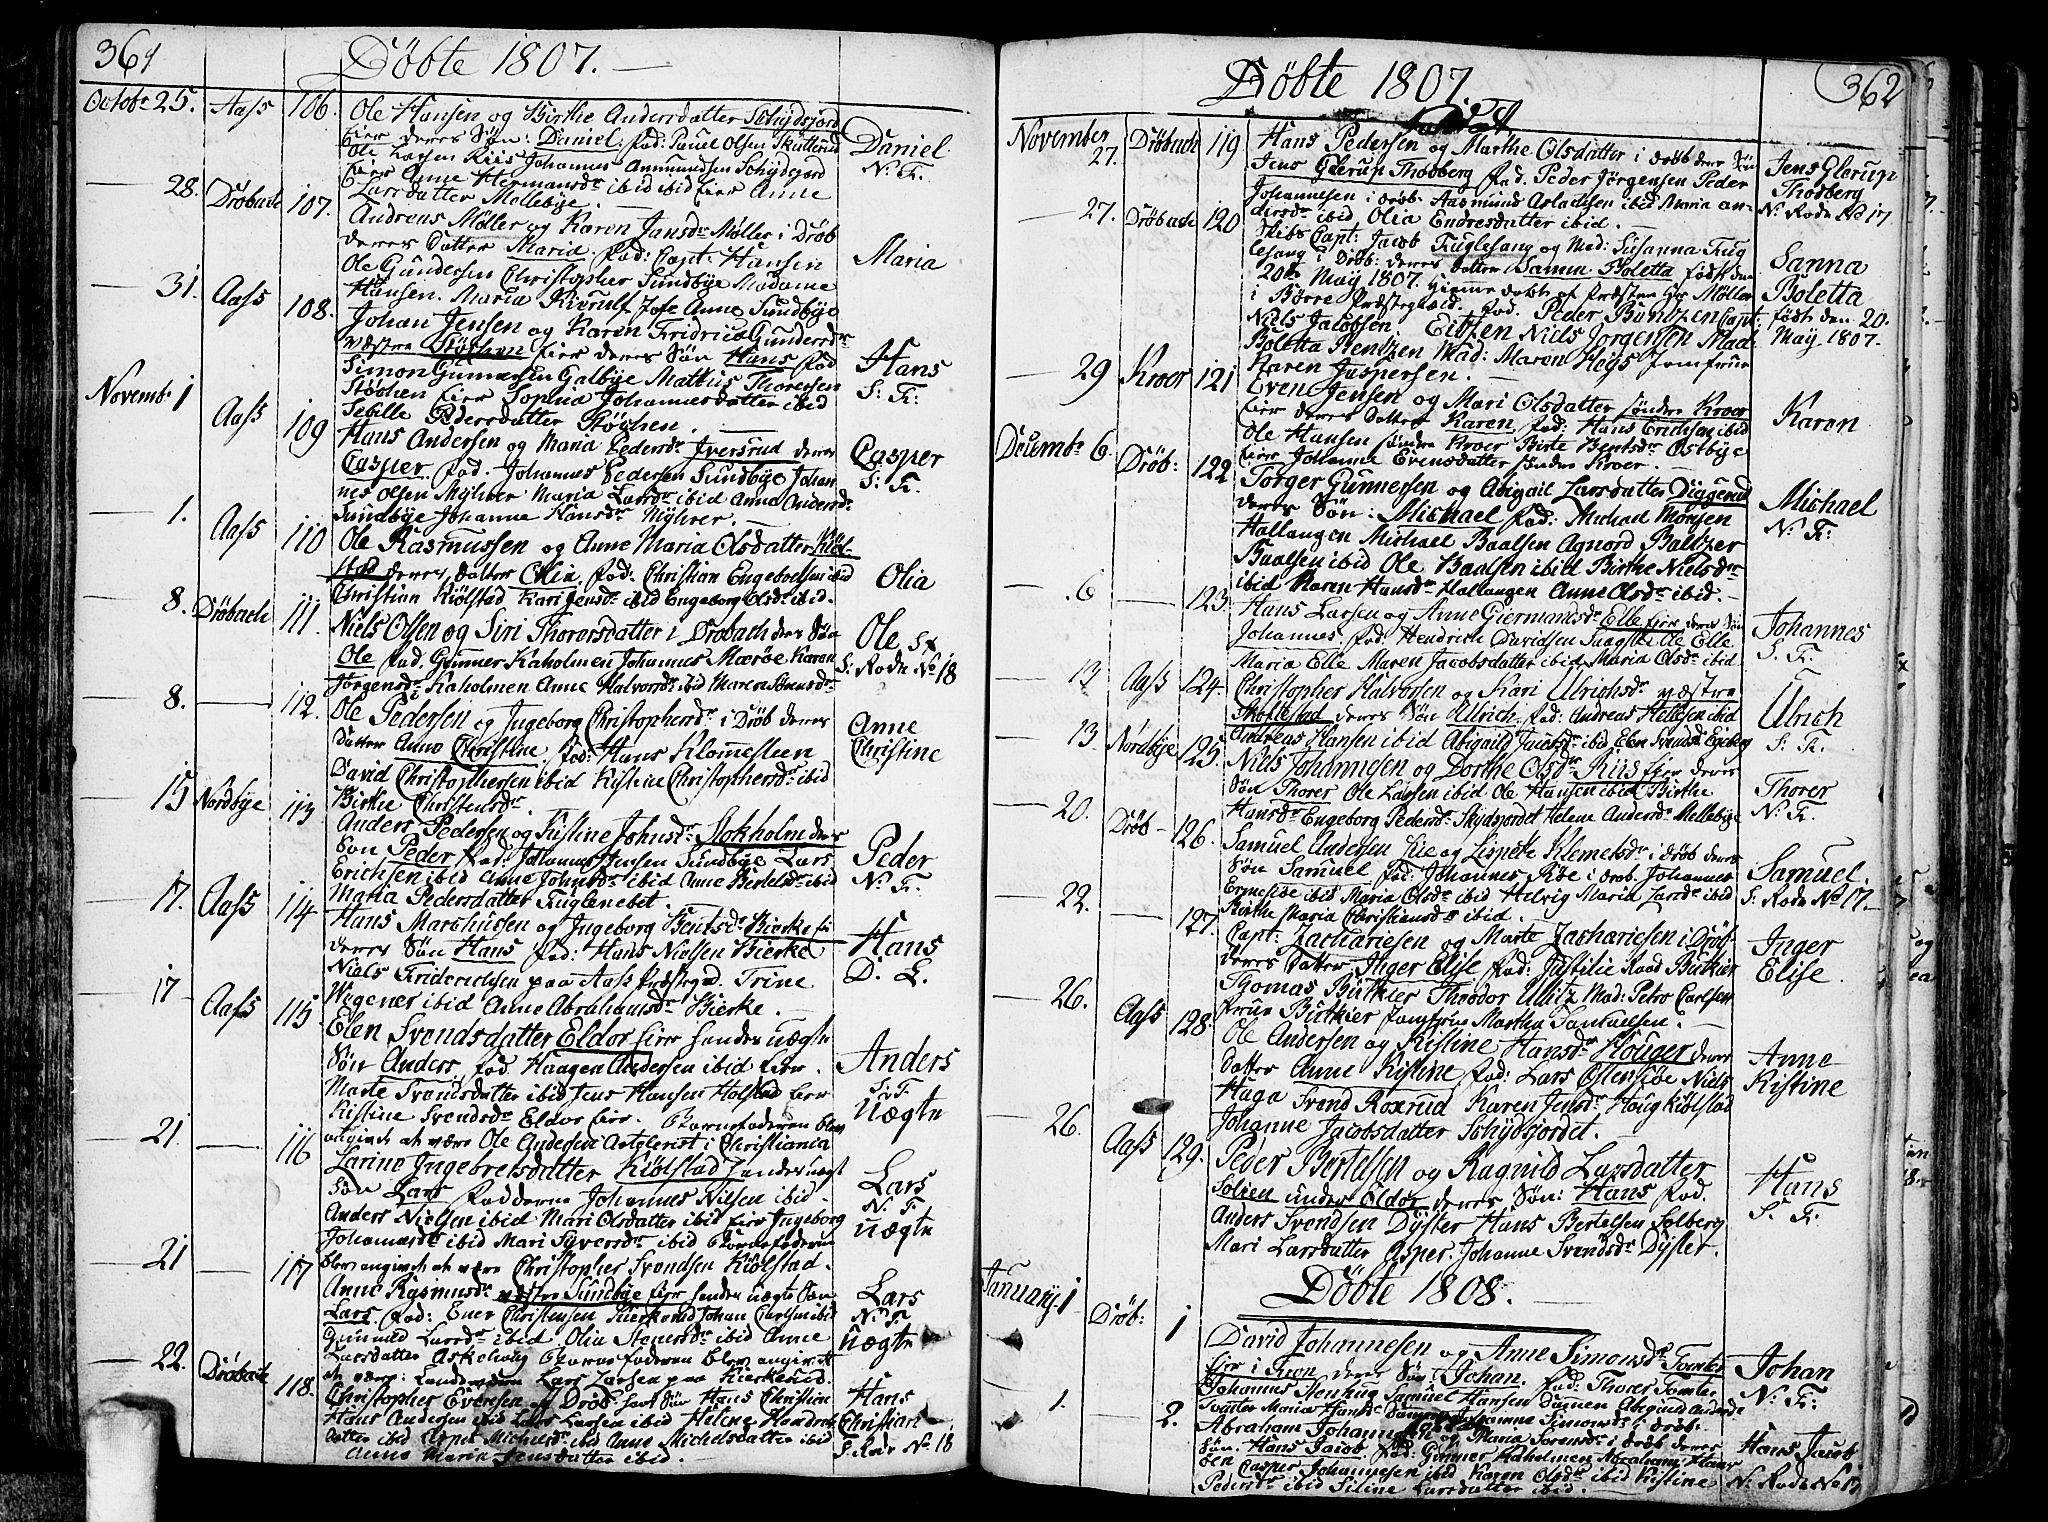 361
Döbte 1807.
Octobr 25. Aass 106. Ole Hansen og Birthe Andersdatter Schydsjord
Eier deres Sön: Daniel. fad: Povel Olsen Skutterud
Ole Larsen Riis Johannes Ammundsen Schydsjord
Eier Anne Hermansdr ibid ibid Eier Anne
Larsdatter Mollebye.
Daniel
N: F.
28. Dröbach 107. Andreas Möller og Karen Jansdr Möller i Dröb
deres Datter Maria fad: Capt: Hansen
Ole Gundersen Christopher Sundbye Madame
Hansen. Maria Jfr Anne Sundbye
Maria
31. Aass 108. Johan Jensen og Karen Fridrica Gundersdr
væstre Stöchen Eier deres Sön Hans fad
Simon Gunnersen Galbye Mathis Thoresen
Stöchen Eier Sophia Johannesdatter ibid
Sebille Pedersdatter Stöchen.
Hans
S: F:
Novembr 1 Aass 109 Hans Andersen og Maria Pedersdr Iversrud deres
Casper. fad. Johannes Pedersen Sundbye Johan
nes Olsen Myhrer Maria Larsdr ibid Anne Andersdr
Sundbye Johanne Hansdr Myhrer.
Casper
S: F.
1. Aass 110 Ole Rasmussen og Anne Maria Olsdatter Kiöl-
stad deres Datter Olia. fad. Christian Engebretsen ibid
Christian Kiölstad Kari Jensdr ibid Engeborg Olsdr ibid.
Olia
8. Dröbach 111. Niels Olsen og Siri Thorersdatter i Dröbach deres Sön
Ole fad. Gunner Kaholmen Johannes Mærøe Karen
Jörgensdr Kaholmen Anne Halvorsdr ibid Maren Sörensdr
Ole
S: Rode No 18
8. 112. Ole Pedersen og Ingeborg Christophersdr i Dröb deres
Datter Anne Christine. fad: Hans Klomesteen
David Christophersen ibid Kistine Christophersdr ibid
Birthe Christensdr
Anne
Christine
15 Nordbye 113 Anders Pedersen og Kistine Johnsdr Stokholm deres
Sön Peder fad: Johannes Jensen Sundbye Lars
Erichsen ibid Anne Johnsdr ibid Anne Bertelsdr ibid
Maria Pedersdatter Fuglerebet.
Peder
N: F.
17. Aass 114 Hans Marchussen og Ingeborg Bentsdr Bierke
deres Sön Hans fad: Hans Nielsen Bierke
Niels Fridericksen paa Aass Præstegd. Trine
Wegener ibid Anne Abrahamsdr Bierke.
Hans
D. E.
17 Aass 115 Elen Svendsdatter Eldor Eier hendes uægte
Sön Anders. fad. Haagen Andersen ibid Eier.
Marte Svendsdatter ibid Jens Hansen Holstad Eier
Kistine Svendsdr Eldor Eier. Barnefaderen blev
angivet at være Ole Andersen Artglerist i Christiania
Anders
S: F.
uægte
21. 116 Larine Ingebretsdatter Kiölstad hendes uægt
Sön Lars Fadderne Johannes Nilsen ibid
Anders Nielsen ibid Mari Olsdatter ibid Eier Ingeborg
Johannesdr ibid Mari Syversdr ibid Barnefaderen
blev angivet at være Christopher Svendsen Kiölstad.
Lars
N. F.
uægte
21 117 Anne Rasmusdr væstre Sundbye Eier hendes uægte Sön
Lars fad: Ener Christensen Kierkerud Johan Carlsen ibid
Gunnild Larsdr ibid Olia Stenersdr ibid Anne
Larsdatter Askehoug Barnefaderen blev angivet
at være: Lars Larsen paa Kierkerud.
Lars
N: F.
uægte
22. Dröbach 118. Christopher Evensen af Dröb Sön Hans Christian
Hans Andersen ibid Lars Larsen ibid Helene Hendrichs
datter ibid Michelsdr ibid Anne Michelsdatter ibid
Anne Maria Jensdatter ibid.
Hans
Christian
S: Rode No 18
362
Döbte 1807.
November 27. Dröbach 119 Hans Pedersen og Marthe Olsdatter i Dröb deres Sön
Jens Glerup Thodberg fad. Peder Jörgensen Peder
Johannesen i Dröb. Aasmund Aslacksen ibid Maria An-
dersdr ibid Olia Endresdatter ibid.
Jens Glerup
Thodberg
N: Rode No 17
27. Dröbach 120 Skibs Capt: Jacob Fuglesang og Mad: Susanna Fug
lesang i Dröb: deres Datter Sanna Boletta födt den
20de May 1807. hjemme döbt af Præsten Hr Möller
i Borre Præstegield. fad. Peder Bentzen Capt:
Niels Jacobsen. Eitzen Niels Jörgensen Mad.
Boletta Bentzen Mad: Maren Höys Jomfrue
Karen Jaspersen.
Sanna
Boletta
födt den 20.
May 1807.
29 Kroer 121 Even Jensen og Mari Olsdatter söndre Kroer
Eier deres Datter Karen, fad: Hans Erichsen ibid
Ole Hansen söndre Kroer Birte Bentsdr Østbye
Eier Johanne Evensdatter söndre Kroer.
Karen
Decembr 6. Dröb: 122 Torger Gunnersen og Abigail Larsdatter Diggerud
deres Sön: Michael fad: Michael Monsen
Hallangen Michael Baalsen Agnord Baltzer
Baalsen ibid Ole Baalsen ibid Birthe Nielsdr
ibid Karen Hansdr Hallangen Anne Olsdr ibid.
Michael
N: F:
6 123. Hans Larsen og Anne Giermundsdr Elle Eier deres Sön
Johannes fad: Hendrich Davidsen Ole Elle
Maria Elle Maren Jacobsdatter ibid Maria Olsdr ibid
Johannes
S. F.
13 Aass 124. Christopher Halvorsen og Kari Ulrichsdr væstre
Skollestad deres Sön Ullrich. fad: Andreas Hellesen ibid
Andreas Hansen ibid Abigaild Jacobsdr ibid Elen Svendsdr
Ulrich
S. F.
13 Nordbye 125. Niels Johannesen og Dorthe Olsdr Riis Eier deres
Sön Thorer Ole Larsen ibid Ole Hansen ibid Birthe
Hansdr Engeborg Pedersdr Skydsjordet Helene Andersdr Mellebye
Thorer
N: F.
20. Dröb 126. Samuel Andersen Eie og Lispete Klemetsdr i Dröb deres
Sön Samuel fad: Johannes i Dröb. Johannes
ibid Maria Olsdr ibid Helvig Maria Larsdr ibid
Birthe Maria Christiansdr ibid.
Samuel.
S: Rode No 17.
22. 127. Capt: Zachariesen og Marte Zachariesen i Dröb
deres Datter Inger Elise fad: Justitie Raad Butkier
Thomas Butkier Theodor Ulitz Mad: Petro Carlsen
frue Butkier Jomfrue Martha Samuelsen.
Inger
Elise.
26. Aass 128. Ole Andersen og Kistine Hansdr Houger deres
Datter Anne Kistine, fad: Lars Ottersiöe Niels
Haga Svend Roxrud Karen Jensdr Haug Kiölstad
Johanne Jacobsdatter Schydsjordet.
Anne
Kistine
26. Aass 129. Peder Bertelsen og Ragnild Larsdatter
Solbien under Eldor deres Sön: Hans fad.
Anders Svendsen Dyster Hans Bertelsen Solberg
Mari Larsdatter Asper. Johanne Svendsdr Dyster.
Hans
S. F.
Döbte 1808.
January 1 Dröb: 1 David Johannesen og Anne Simonsdr Tomter
Eier i Fron deres Sön Johan. fad: Thorer Tomter
Johannes Stenhug Samuel Hansen Damen Abigaild Andersdr
Maria Hansdr Johanne Simonsdr i Dröb.
Johan
N: F:
1. 2. Abraham Johannesen og Maria Sörensdr i Dröb deres
Sön. Hans Jacob. fad: Gunner Kaholmen Abraham
Casper Johannesen ibid Karen Olsdr ibid Kistine
Pedersdr ibid Siline Larsdatter ibid.
Hans Jacob
N: Rode No 17